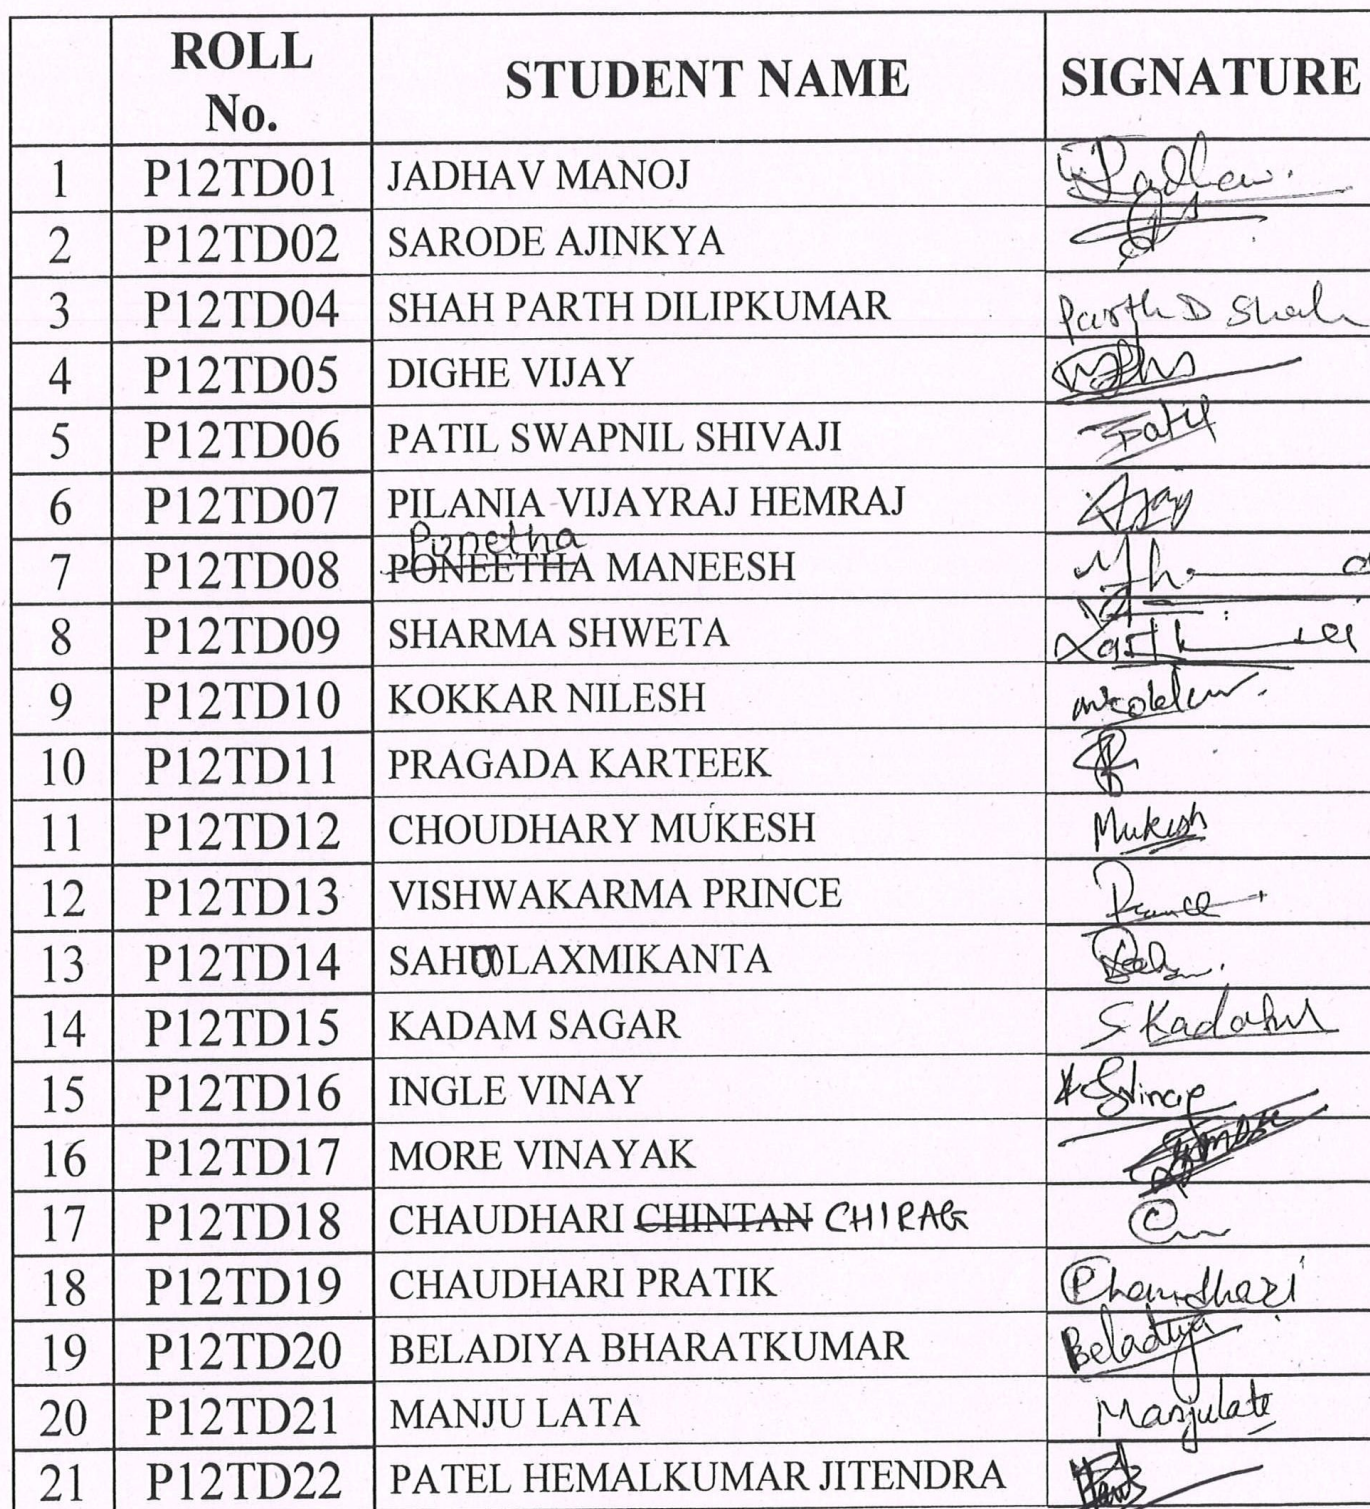 ROLL No. STUDENT NAME SIGNATURE
1 P12TD01 JADHAV MANOJ Jadhav.
2 P12TD02 SARODE AJINKYA
3 P12TD04 SHAH PARTH DILIPKUMAR Parth D Shah
4 P12TD05 DIGHE VIJAY
5 P12TD06 PATIL SWAPNIL SHIVAJI Patil
6 P12TD07 PILANIA VIJAYRAJ HEMRAJ
Punetha
7 P12TD08 PONEETHA MANEESH
8 P12TD09 SHARMA SHWETA
9 P12TD10 KOKKAR NILESH
10 P12TD11 PRAGADA KARTEEK
11 P12TD12 CHOUDHARY MUKESH Mukesh
12 P12TD13 VISHWAKARMA PRINCE Prince
13 P12TD14 SAHOO LAXMIKANTA
14 P12TD15 KADAM SAGAR
15 P12TD16 INGLE VINAY
16 P12TD17 MORE VINAYAK
17 P12TD18 CHAUDHARI CHINTAN CHIRAG
18 P12TD19 CHAUDHARI PRATIK PChaudhari
19 P12TD20 BELADIYA BHARATKUMAR Beladiya
20 P12TD21 MANJU LATA Manjulata
21 P12TD22 PATEL HEMALKUMAR JITENDRA